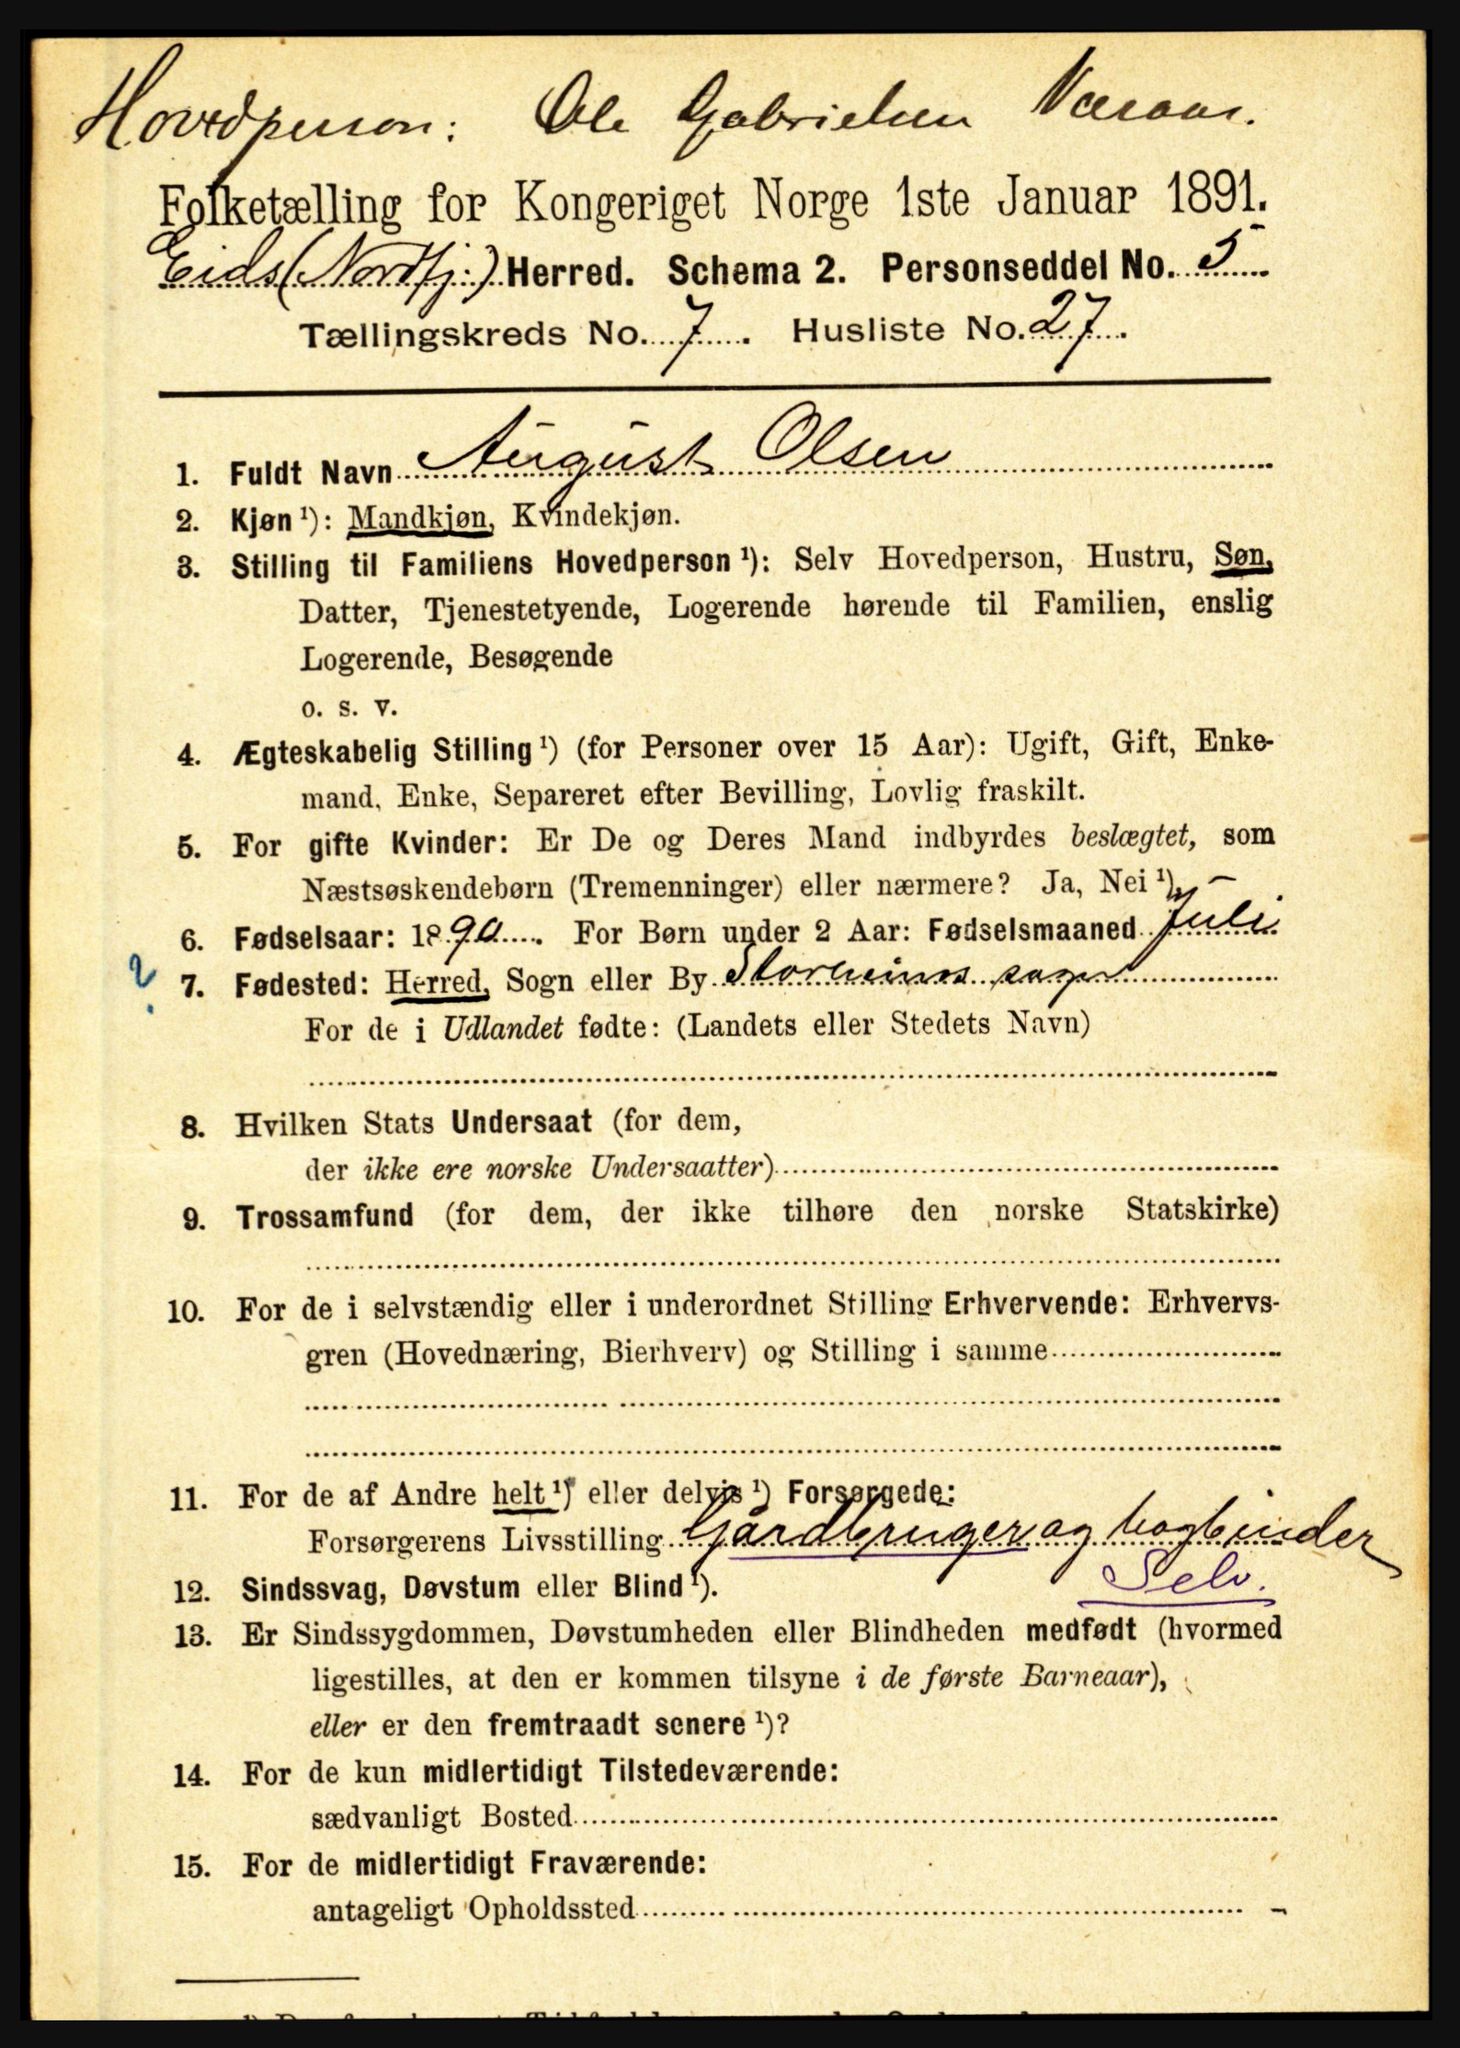 Hovedperson: Ole Gabrielsen
Folketælling for Kongeriget Norge 1ste Januar 1891.
Eids (Nordfj:) Herred. Schema 2. Personseddel No. 5
Tællingskreds No. 7. Husliste No. 27.
1. Fuldt Navn August Olsen
2. Kjøn ¹): Mandkjøn, Kvindekjøn.
3. Stilling til Familiens Hovedperson ¹): Selv Hovedperson, Hustru, Søn,
Datter, Tjenestetyende, Logerende hørende til Familien, enslig
Logerende, Besøgende
o. s. v.
4. Ægteskabelig Stilling ¹) (for Personer over 15 Aar): Ugift, Gift, Enke-
mand, Enke, Separeret efter Bevilling, Lovlig fraskilt.
5. For gifte Kvinder: Er De og Deres Mand indbyrdes beslægtet, som
Næstsøskendebørn (Tremenninger) eller nærmere? Ja, Nei ¹). –
6. Fødselsaar: 1890. For Børn under 2 Aar: Fødselsmaaned Juli
? 7. Fødested: Herred, Sogn eller By
For de i Udlandet fødte: (Landets eller Stedets Navn)
8. Hvilken Stats Undersaat (for dem,
der ikke ere norske Undersaatter)
9. Trossamfund (for dem, der ikke tilhøre den norske Statskirke)
10. For de i selvstændig eller i underordnet Stilling Erhvervende: Erhvervs-
gren (Hovednæring, Bierhverv) og Stilling i samme
11. For de af Andre helt ¹) eller delvis ¹) Forsørgede:
Forsørgerens Livsstilling Gårdbruger og bogbinder
12. Sindssvag, Døvstum eller Blind ¹). Selv.
13. Er Sindssygdommen, Døvstumheden eller Blindheden medfødt (hvormed
ligestilles, at den er kommen tilsyne i de første Barneaar),
eller er den fremtraadt senere ¹)?
14. For de kun midlertidigt Tilstedeværende:
sædvanligt Bosted
15. For de midlertidigt Fraværende:
antageligt Opholdssted